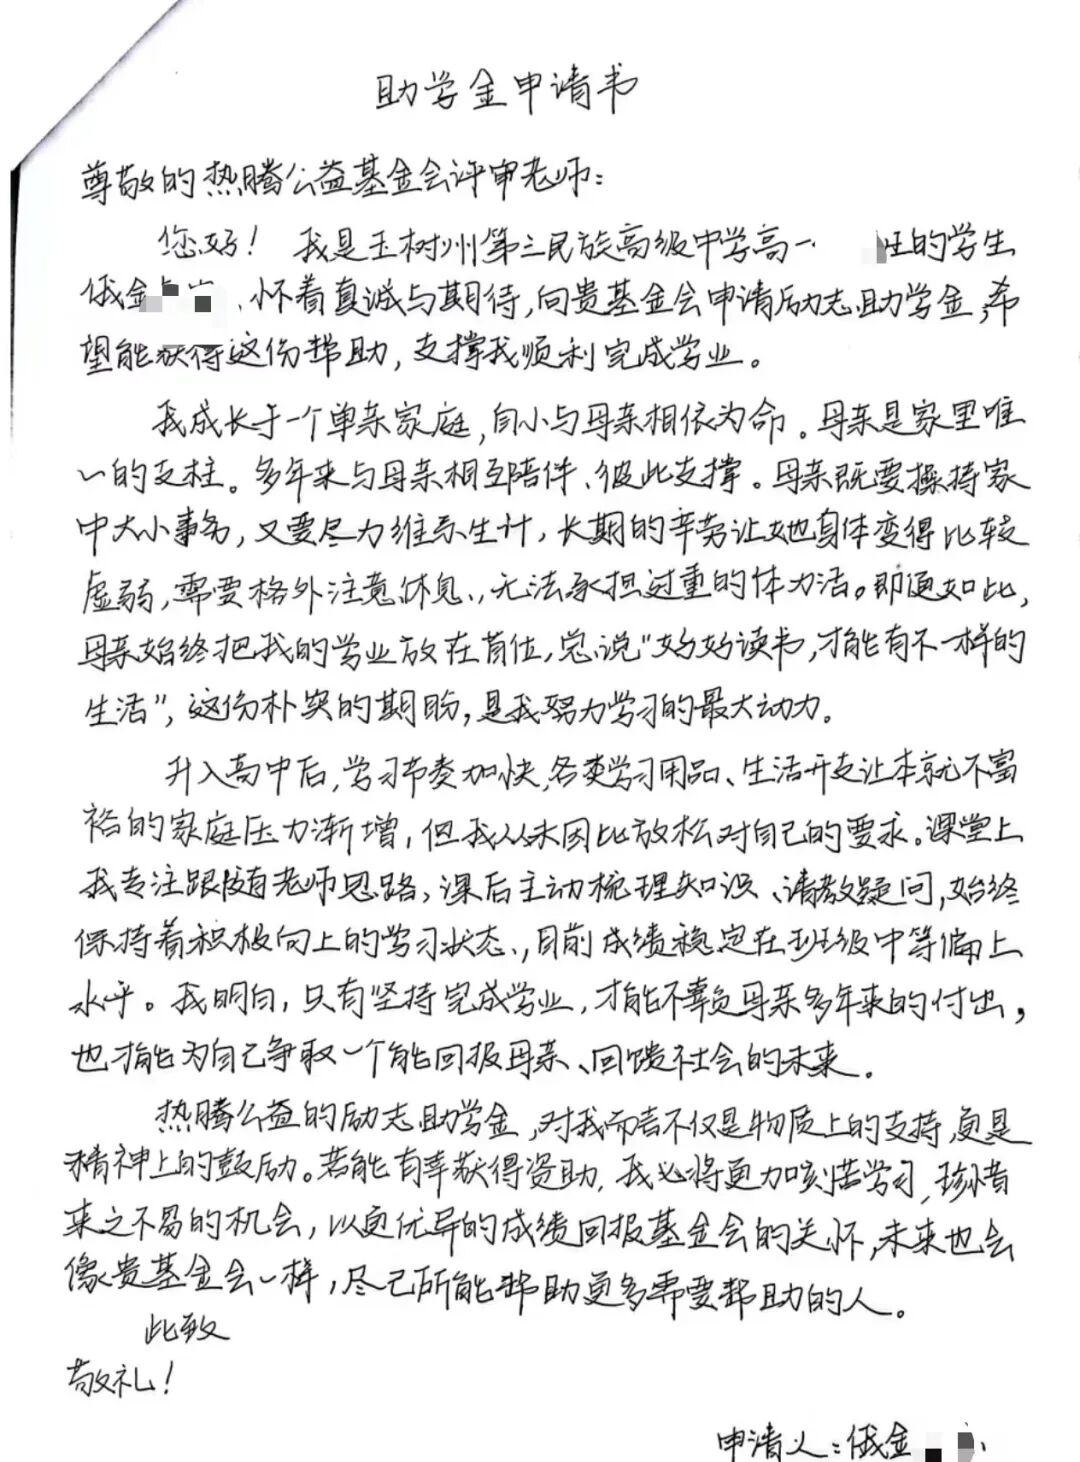 助学金申请书
尊敬的热腾公益基金会评审老师：
您好！我是玉树州第三民族高级中学高一 班的学生
俄金 、怀着真诚与期待，向贵基金会申请励志助学金，希
望能获得这份帮助，支撑我顺利完成学业。
我成长于一个单亲家庭，自小与母亲相依为命。母亲是家里唯
一的支柱。多年来与母亲相互陪伴、彼此支撑。母亲既要操持家
中大小事务，又要尽力维系生计，长期的辛劳让她身体变得比较
虚弱，需要格外注意休息、，无法承担过重的体力活。即便如此，
母亲始终把我的学业放在首位，总说“好好读书，才能有不一样的
生活”，这份朴实的期盼，是我努力学习的最大动力。
升入高中后，学习节奏加快，各类学习用品、生活开支让本就不富
裕的家庭压力渐增，但我从未因此放松对自己的要求。课堂上
我专注跟随老师思路，课后主动梳理知识、请教疑问，始终
保持着积极向上的学习状态、，目前成绩稳定在班级中等偏上
水平。我明白，只有坚持完成学业，才能不辜负母亲多年来的付出，
也才能为自己争取一个能回报母亲、回馈社会的未来。
热腾公益的励志助学金，对我而言不仅是物质上的支持，更是
精神上的鼓励。若能有幸获得资助，我必将更加刻苦学习，珍惜
来之不易的机会，以更优异的成绩回报基金会的关怀，未来也会
像贵基金会一样，尽己所能帮助更多需要帮助的人。
此致
敬礼！
申请人：俄金